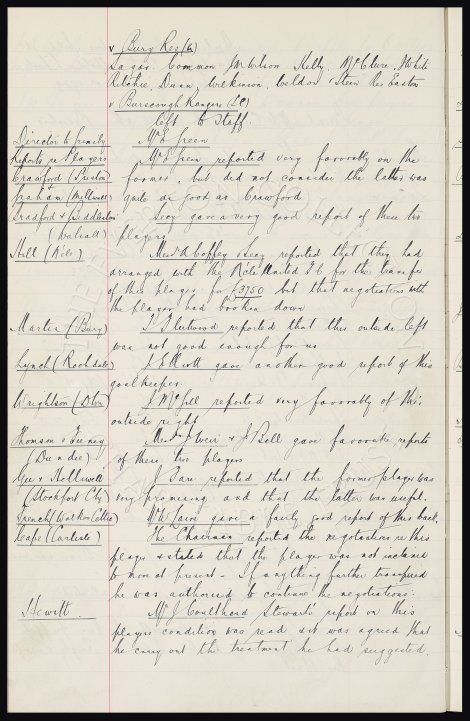 v Bury Res (h)
Sagar Common McWilson Kelly, McClure, White
Ritchie, Dunn, Wilkinson, Weldon & Stein Res Easton
v Burscough Rangers (LC)
left to Staff
Director to Scrutiny
Reports re Players
Mr E Green
Crawford (Preston)
Mr Green reported very favorably on the
&
former, but did not consider the latter was
Graham (Millwall)
quite as good as Crawford
Bradford & Biddlestone
Secy gave a very good report of these two
(Walsall)
players
Hill (Ra'e)
Messrs A Coffey & Secy reported that they had
arranged with the Ra'e United F C for the transfer
of this player for £3750 but that negotiations with
the player had broken down
Martin (Bury)
T Fleetwood reported that this outside left
was not good enough for us
Lynch (Rochdale)
J Elliott gave another good report of this
goalkeeper
Wrightson (Dton)
J McGill reported very favorably of this
outside right
Thomson & Feeney
Messrs J Weir & J Bell gave favorable reports
(Dundee)
of these two players
Gee & Holliwell
J Dare reported that the former player was
(Stockport Cty)
very promising and that the latter was useful.
French (Workton Coltre)
Mr W gave a fairly good report of this back.
Cape (Carlisle)
The Chairman reported the negotiations re this
player & stated that the player was not inclined
to move at present - If anything further transpired
he was authorised to continue the negotiations.
Hewitt
Mr J Coulthard Stewart's report on this
players condition was read & it was agreed that
he carry out the treatment he had suggested.